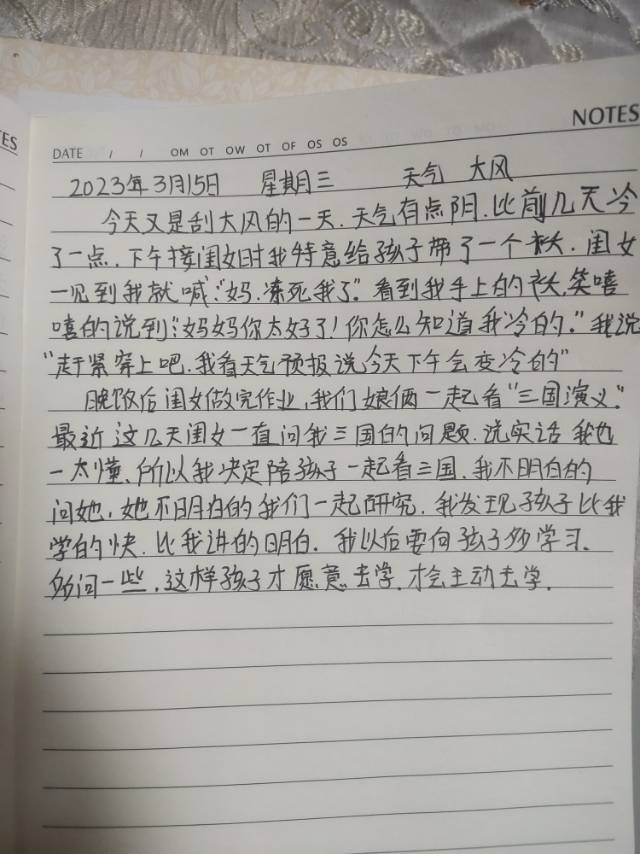 TES
NOTES
DATE / / OM OT OW OT OF OS OS
2023年3月15日 星期三 天气 大风
今天又是刮大风的一天.天气有点阴.比前几天冷
了一点.下午接闺女时我特意给孩子带了一个袄.闺女
一见到我就喊:"妈.冻死我了".看到我手上的袄.笑嘻
嘻的说到:"妈妈你太好了!你怎么知道我冷的."我说
"赶紧穿上吧.我看天气预报说今天下午会变冷的"
晚饭后闺女做完作业,我们娘俩一起看"三国演义".
最近这几天闺女一直问我三国的问题.说实话我也
一太懂、所以我决定陪孩子一起看三国.我不明白的
问她,她不明白的我们一起研究.我发现孩子比我
学的快.比我讲的明白.我以后要向孩子多学习.
多问一些,这样孩子才愿意去学.才会主动去学.